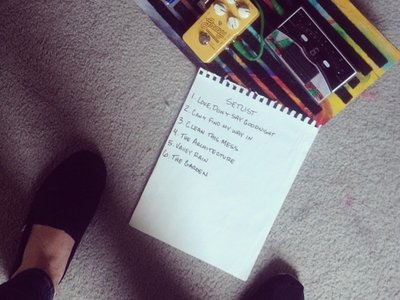 SETLIST
1. LOVE, DON'T SAY GOODNIGHT
2. CAN'T FIND MY WAY IN
3. CLEAN THIS MESS
4. THE ARCHITECTURE
5. VALLEY RAIN
6. THE GARDEN